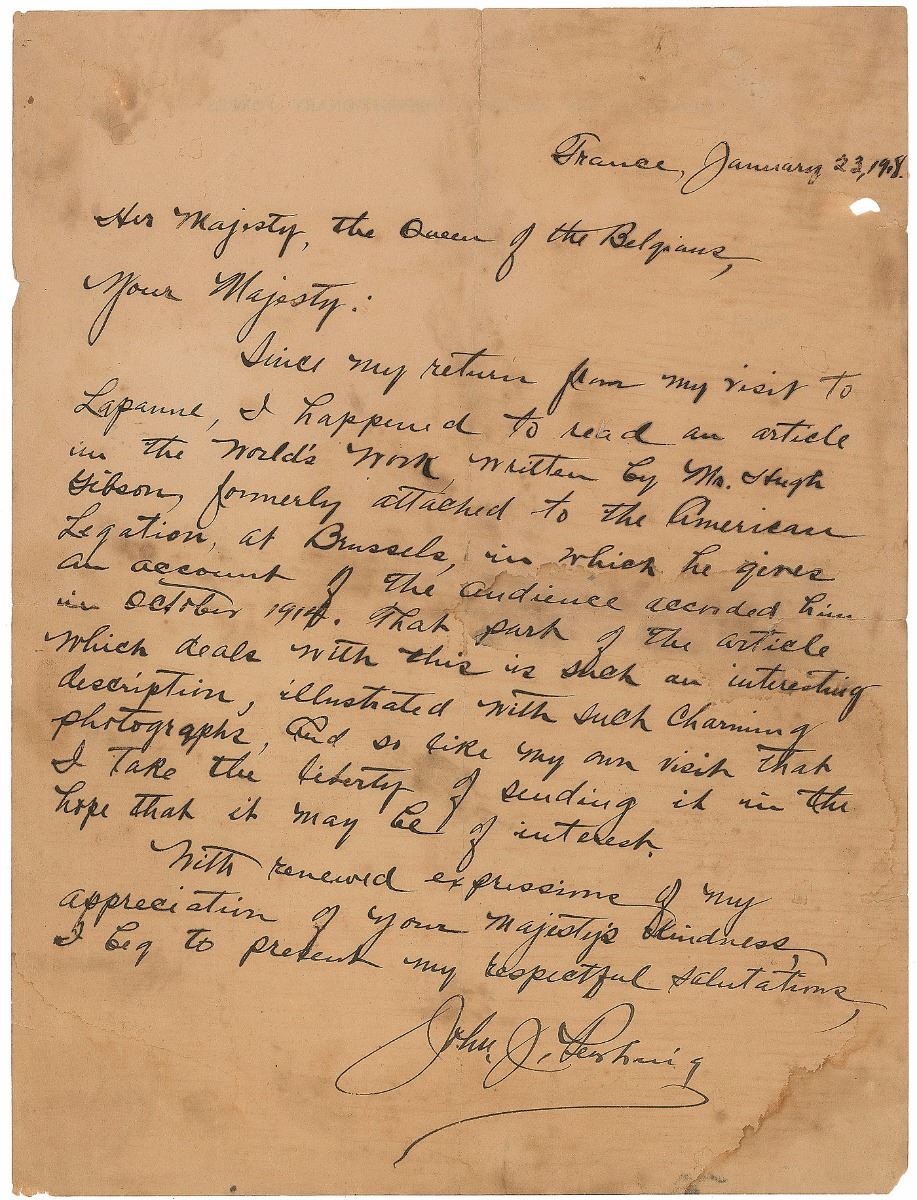 France, January 23, 1918.
Her Majesty, the Queen of the Belgians,
Your Majesty:
Since my return from my visit to
Lapanne, I happened to read an article
in the World's Work, written by Mr. Hugh
Gibson, formerly attached to the American
Legation, at Brussels, in which he gives
an account of the audience accorded him
in October 1914. That part of the article
which deals with this is such an interesting
description, illustrated with such charming
photographs, and so like my own visit that
I take the liberty of sending it in the
hope that it may be of interest.
With renewed expressions of my
appreciation of Your Majesty's kindness,
I beg to present my respectful salutations,
John J. Pershing